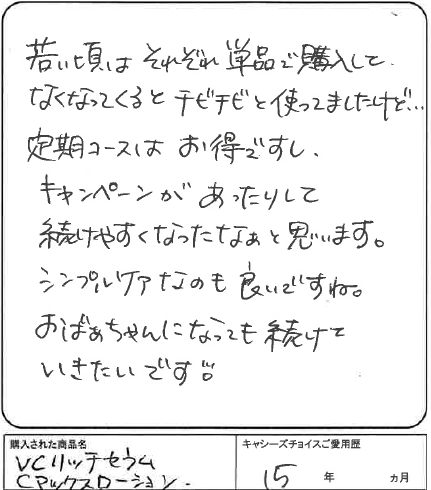 若い頃は それぞれ 単品で購入して、
なくなってくると チビチビと 使ってましたけど…
定期コースは お得ですし、
キャンペーンが あったりして
続けやすくなったなぁと思います。
シンプルケアなのも 良いですね。
おばぁちゃんになっても 続けて
いきたいです
購入された商品名
VCリッチセラム
CPックスローション.
キャシーズチョイスご愛用歴
15 年 ヵ月